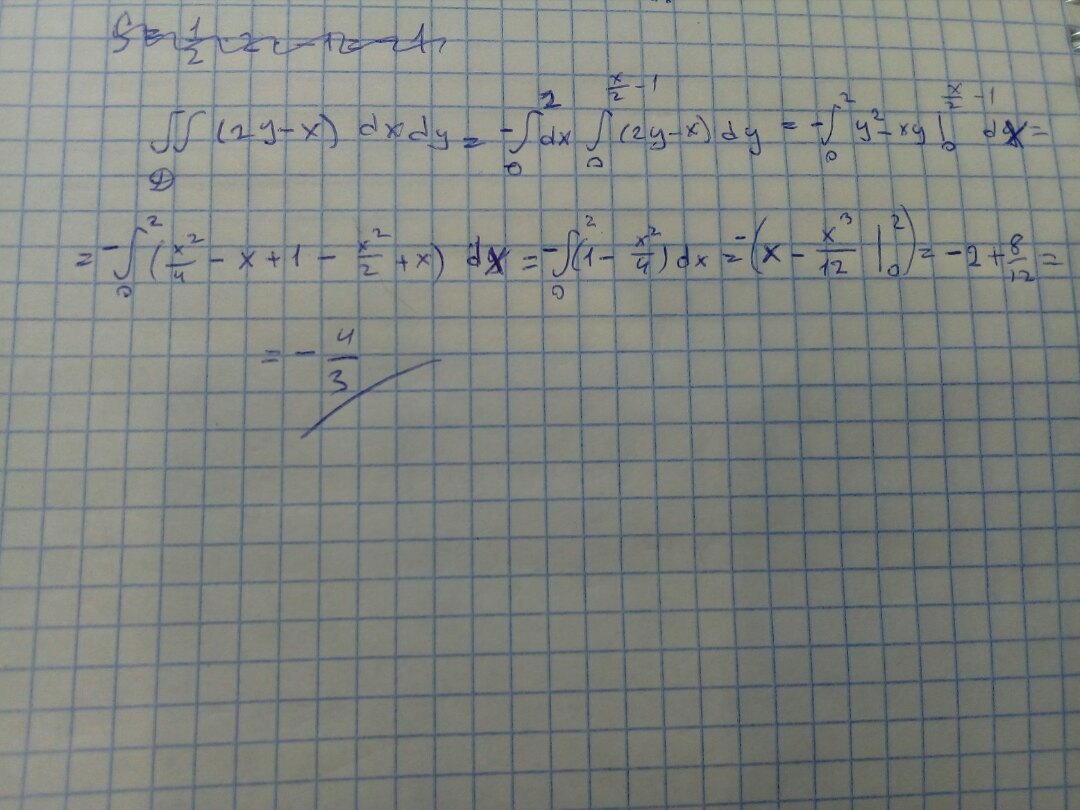 S = 1/2 · 2 · 1 = 1
∬_D (2y-x) dxdy = -∫_0^2 dx ∫_0^{x/2 -1} (2y-x) dy = -∫_0^2 y^2-xy |_0^{x/2 -1} dx =
= -∫_0^2 (x^2/4 - x + 1 - x^2/2 + x) dx = -∫_0^2 (1 - x^2/4) dx = -(x - x^3/12 |_0^2) = -2 + 8/12 =
= - 4/3